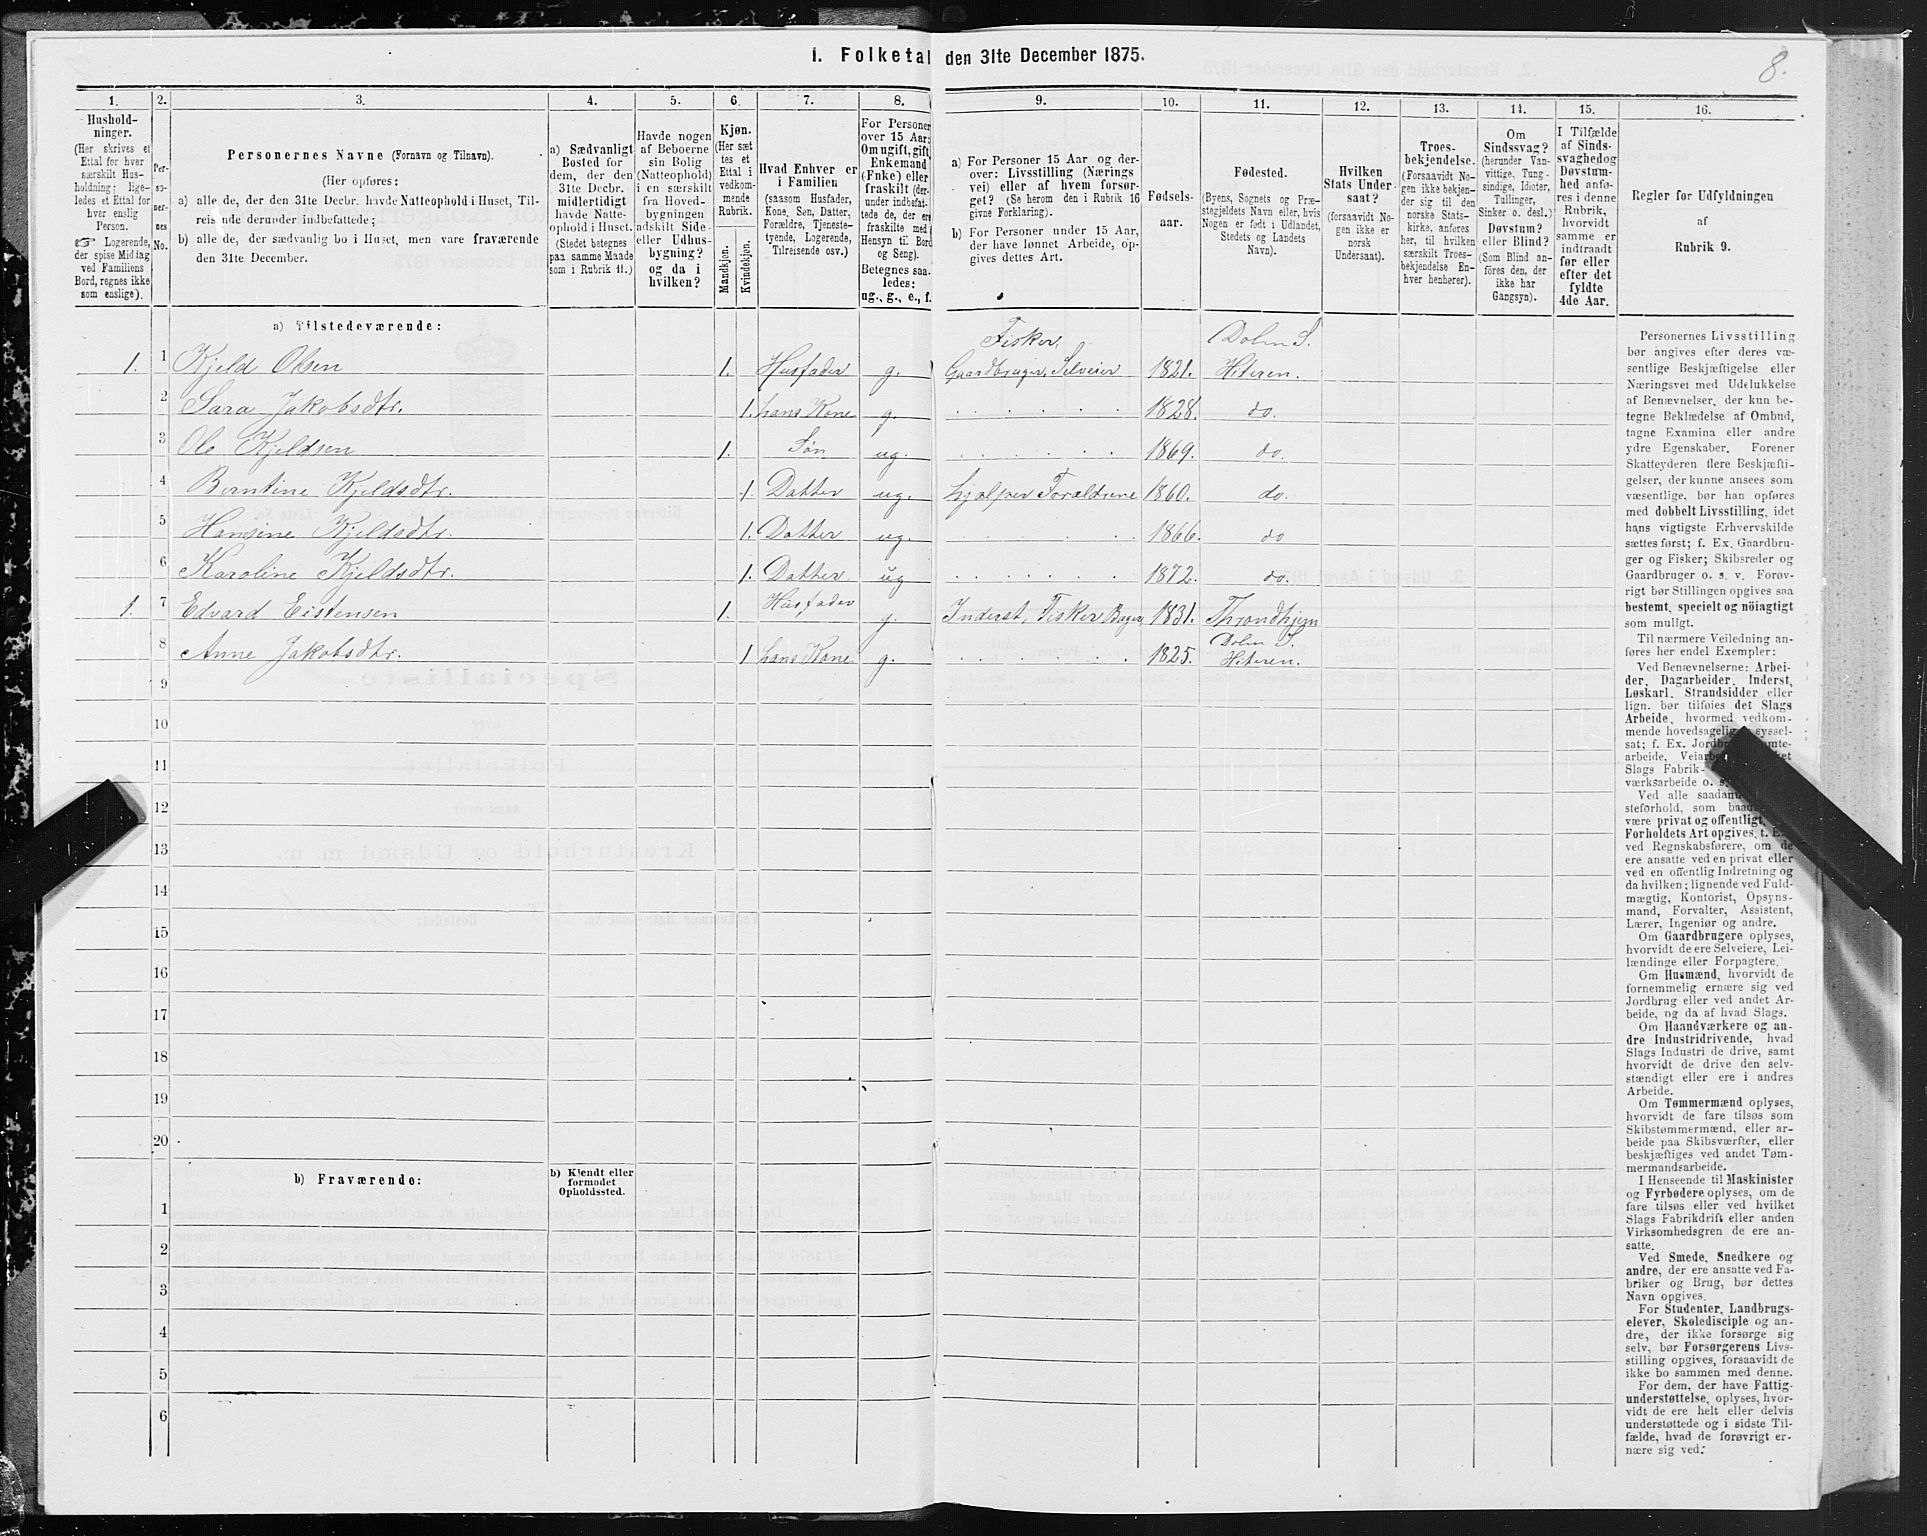 I. Folketal den 31te December 1875.
8.
1. 2. 3. 4. 5. 6. 7. 8. 9. 10. 11. 12. 13. 14. 15. 16.
Hushold-
ninger.
(Her skrives et
Ettal for hver
særskilt Hus-
holdning; lige-
ledes et Ettal for
hver enslig
Person.
☞ Logerende,
der spise Middag
ved Familiens
Bord, regnes ikke
som enslige).
Per-
so-
ner-
nes
No.
Personernes Navne (Fornavn og Tilnavn).
(Her opføres:
a) alle de, der den 31te Decbr. havde Natteophold i Huset, Til-
reisende derunder indbefattede;
b) alle de, der sædvanlig bo i Huset, men vare fraværende
den 31te December.
a) Sædvanligt
Bosted for
dem, der den
31te Decbr.
midlertidigt
havde Natte-
ophold i Huset.
(Stedet betegnes
paa samme Maade
som i Rubrik 11.)
Havde nogen
af Beboerne
sin Bolig
(Natteophold)
i en særskilt
fra Hoved-
bygningen
adskilt Side-
eller Udhus-
bygning?
og da i
hvilken?
Kjøn.
(Her sæt-
tes et
Ettal i
vedkom-
mende
Rubrik.
Mandkjøn.
Kvindekjøn.
Hvad Enhver er
i Familien
(saasom Husfader,
Kone, Søn, Datter,
Forældre, Tjeneste-
tyende, Logerende,
Tilreisende osv.)
For Personer
over 15 Aar:
Om ugift, gift,
Enkemand
(Enke) eller
fraskilt (der-
under indbefat-
tede de, der ere
fraskilte med
Hensyn til Bord
og Seng).
Betegnes saa-
ledes:
ug., g., e., f.
a) For Personer 15 Aar og der-
over: Livsstilling (Nærings-
vei) eller af hvem forsør-
get? (Se herom den i Rubrik 16
givne Forklaring).
b) For Personer under 15 Aar,
der have lønnet Arbeide, op-
gives dettes Art.
Fødsels-
aar.
Fødested.
(Byens, Sognets og Præ-
stegjeldets Navn eller, hvis
Nogen er født i Udlandet,
Stedets og Landets
Navn).
Hvilken
Stats Under-
saat?
(forsaavidt No-
gen ikke er
norsk
Undersaat).
Troes-
bekjendelse.
(Forsaavidt No-
gen ikke bekjen-
der sig til den
norske Stats-
kirke, anføres
her, til hvilken
særskilt Troes-
bekjendelse En-
hver henhører).
Om
Sindssvag?
(herunder Van-
vittige, Tung-
sindige, Idioter,
Tullinger,
Sinker o. desl.)
Døvstum?
eller Blind?
(Som Blind an-
føres den, der
ikke har
Gangsyn).
I Tilfælde
af Sinds-
svaghed og
Døvstum-
hed anfø-
res i denne
Rubrik,
hvorvidt
samme er
indtraadt
før eller
efter det
fyldte
4de Aar.
Regler for Udfyldningen
af
Rubrik 9.
a) Tilstedeværende:
Fisker, Dolm S.
1. 1 Kjeld Olsen 1. Husfader g. Gaardbruger, Selveier 1821. Hiteren.
2 Sara Jakobsdtr. 1. hans Kone g. 1828. do.
3 Ole Kjeldsen 1. Søn ug. 1869. do.
4 Berntine Kjeldsdtr. 1. Datter ug. hjælper Forældrene 1860. do.
5 Hansine Kjeldsdtr. 1. Datter ug. 1866. do
6 Karoline Kjeldsdtr. 1. Datter ug 1872. do.
1. 7 Edvard Eistensen 1. Husfader g. Inderst, Fisker 1831. Throndhjem
Dolm S.
8 Anne Jakobsdtr. 1 hans Kone g. 1825. Hiteren.
9
10
11
12
13
14
15
16
17
18
19
20
b) Fraværende:
b) Kjendt eller
formodet
Opholdssted.
1
2
3
4
5
6
Personernes Livsstilling
bør angives efter deres væ-
sentlige Beskjæftigelse eller
Næringsvei med Udelukkelse
af Benævnelser, der kun be-
tegne Beklædelse af Ombud,
tagne Examina eller andre
ydre Egenskaber. Forener
Skatteyderen flere Beskjæfti-
gelser, der kunne ansees som
væsentlige, bør han opføres
med dobbelt Livsstilling, idet
hans vigtigste Erhvervskilde
sættes først; f. Ex. Gaardbru-
ger og Fisker; Skibsreder og
Gaardbruger o. s. v. Forøv-
rigt bør Stillingen opgives saa
bestemt, specielt og nöiagtigt
som muligt.
Til nærmere Veiledning an-
føres her endel Exempler:
Ved Benævnelserne: Arbei-
der, Dagarbeider, Inderst,
Løskarl, Strandsidder eller
lign. bør tilføies det Slags
Arbeide, hvormed vedkom-
mende hovedsagelig syssel-
sat; f. Ex.
arbeide,
Slags Fabrik-
værksarbeide o. s.
Ved alle
steforhold, som
være privat og offentligt,
Forholdets Art opgives, t. Ex.
ved Regnskabsførere, om de
ere ansatte ved en privat eller
ved en offentlig Indretning og
da hvilken; lignende ved Fuld-
mægtig, Kontorist, Opsyns-
mand, Forvalter, Assistent,
Lærer, Ingeniør og andre.
Om Gaardbrugere oplyses,
hvorvidt de ere Selveiere, Lei-
lændinge eller Forpagtere.
Om Husmænd, hvorvidt de
fornemmelig ernære sig ved
Jordbrug eller ved andet Ar-
beide, og da af hvad Slags.
Om Haandværkere og an-
dre Industridrivende, hvad
Slags Industri de drive, samt
hvorvidt de drive den selv-
stændigt eller ere i andres
Arbeide.
Om Tømmermænd oplyses,
hvorvidt de fare tilsøs som
Skibstømmermænd, eller ar-
beide paa Skibsværfter, eller
beskjæftiges ved andet Tøm-
mermandsarbeide.
I Henseende til Maskinister
og Fyrbødere oplyses, om de
fare tilsøs eller ved hvilket
Slags Fabrikdrift eller anden
Virksomhedsgren de ere an-
satte.
Ved Smede, Snedkere og
andre, der ere ansatte ved Fa-
briker og Brug, bør dettes
Navn opgives.
For Studenter, Landbrugs-
elever, Skoledisciple og an-
dre, der ikke forsørge sig
selv, bør Forsørgerens Livs-
stilling opgives, forsaavidt de
ikke bo sammen med denne.
For dem, der have Fattig-
understøttelse, oplyses, hvor-
vidt de ere helt eller delvis
understøttede og i sidste Til-
fælde, hvad de forøvrigt er-
nære sig ved.